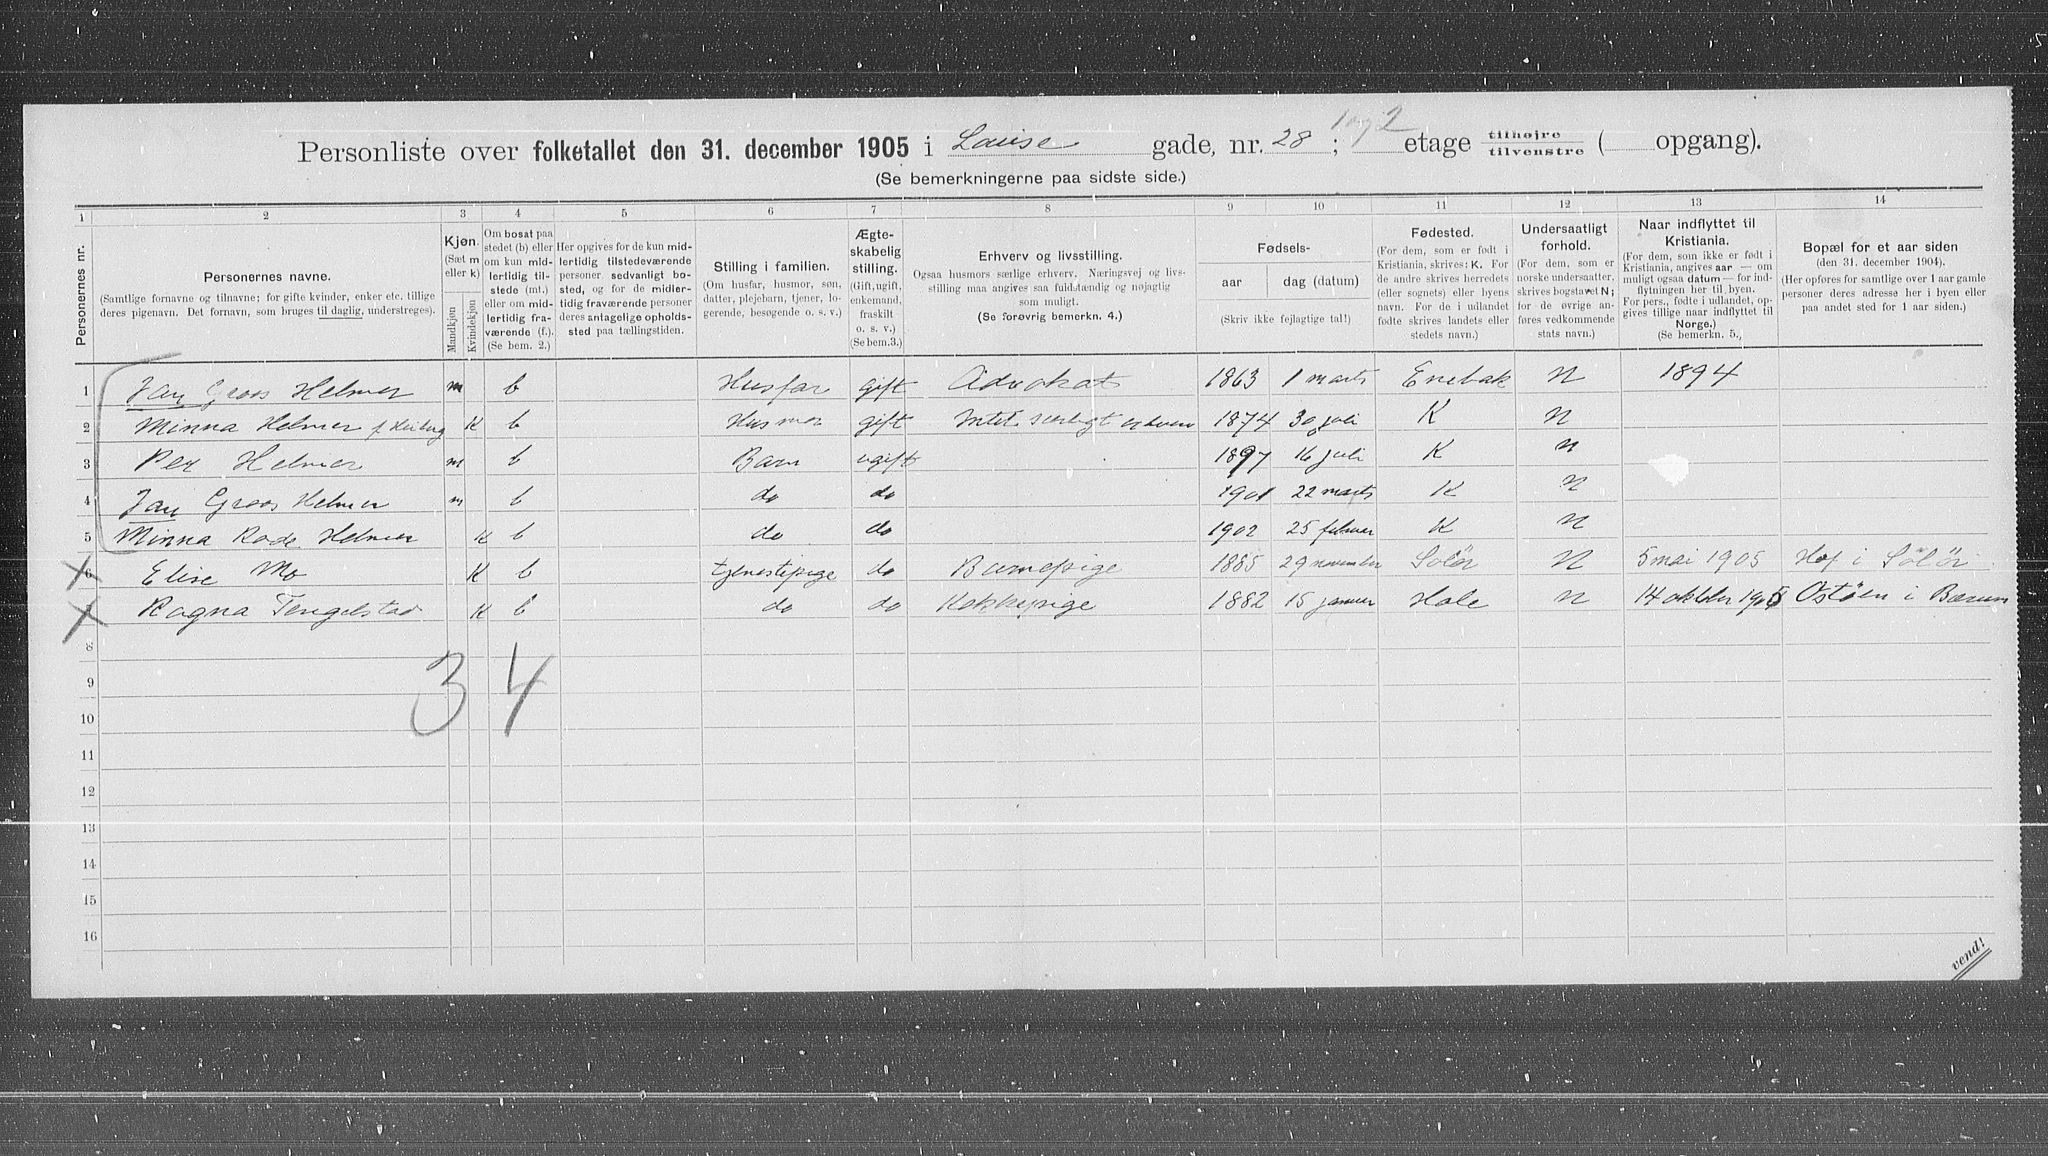 Personliste over folketallet den 31. december 1905 i Louise gade, nr. 28 ; 1 og 2 etage tilhøjre tilvenstre ( opgang).
(Se bemerkningerne paa sidste side.)
1 2 3 4 5 6 7 8 9 10 11 12 13 14
Personernes nr.
Personernes navne.
(Samtlige fornavne og tilnavne; for gifte kvinder, enker etc. tillige deres pigenavn. Det fornavn, som bruges til daglig, understreges).
Kjøn. (Sæt m eller k)
Mandkjøn Kvindekjøn
Om bosat paa stedet (b) eller om kun midlertidig tilstede (mt.) eller om midlertidig fraværende (f.). (Se bem. 2.)
Her opgives for de kun midlertidig tilstedeværende personer sedvanligt bosted, og for de midlertidig fraværende personer deres antagelige opholdssted paa tællingstiden.
Stilling i familien.
(Om husfar, husmor, søn, datter, plejebarn, tjener, logerende, besøgende o. s. v.)
Ægteskabelig stilling.
(Gift, ugift, enkemand, fraskilt o. s. v.) (Se bem. 3.)
Erhverv og livsstilling.
Ogsaa husmors særlige erhverv. Næringsvej og livsstilling maa angives saa fuldstændig og nøjagtig som muligt.
(Se forøvrig bemerkn. 4.)
Fødsels-
aar dag (datum)
(Skriv ikke fejlagtige tal!)
Fødested.
(For dem, som er født i Kristiania, skrives: K. For de andre skrives herredets (eller sognets) eller byens navn. For de i udlandet fødte skrives landets eller stedets navn.)
Undersaatligt forhold.
(For dem, som er norske undersaatter, skrives bogstavet N; for de øvrige anføres vedkommende stats navn.)
Naar indflyttet til Kristiania.
(For dem, som ikke er født i Kristiania, angives aar — om muligt ogsaa datum — for indflytningen her til byen. For pers., fødte i udlandet, opgives tillige naar indflyttet til Norge.) (Se bemerkn. 5.,
Bopæl for et aar siden
(den 31. december 1904).
(Her opføres for samtlige over 1 aar gamle personer deres adresse her i byen eller paa andet sted for 1 aar siden.)
1 Jan Groos Helmer m b Husfar gift Advokat 1863 1 marts Enebak N 1894
2 Minna Helmer f. Heiberg K b Husmor gift Intet særligt erhverv 1874 30 juli K N
3 Per Helmer m b Barn ugift 1897 16 juli K N
4 Jan Groos Helmer m b do do 1901 22 marts K N
5 Minna Rode Helmer K b do do 1902 25 februar K N
6 Elise Mo K b tjenestepige do Barnepige 1885 29 november Solör N 5 mai 1905 Hof i Solör
Ragna Tengelstad K b do do Kokkepige 1882 15 januar Hole N 14 oktober 1905 Ostöen i Bærum
8
3 4
9
10
11
12
13
14
15
16
vend!